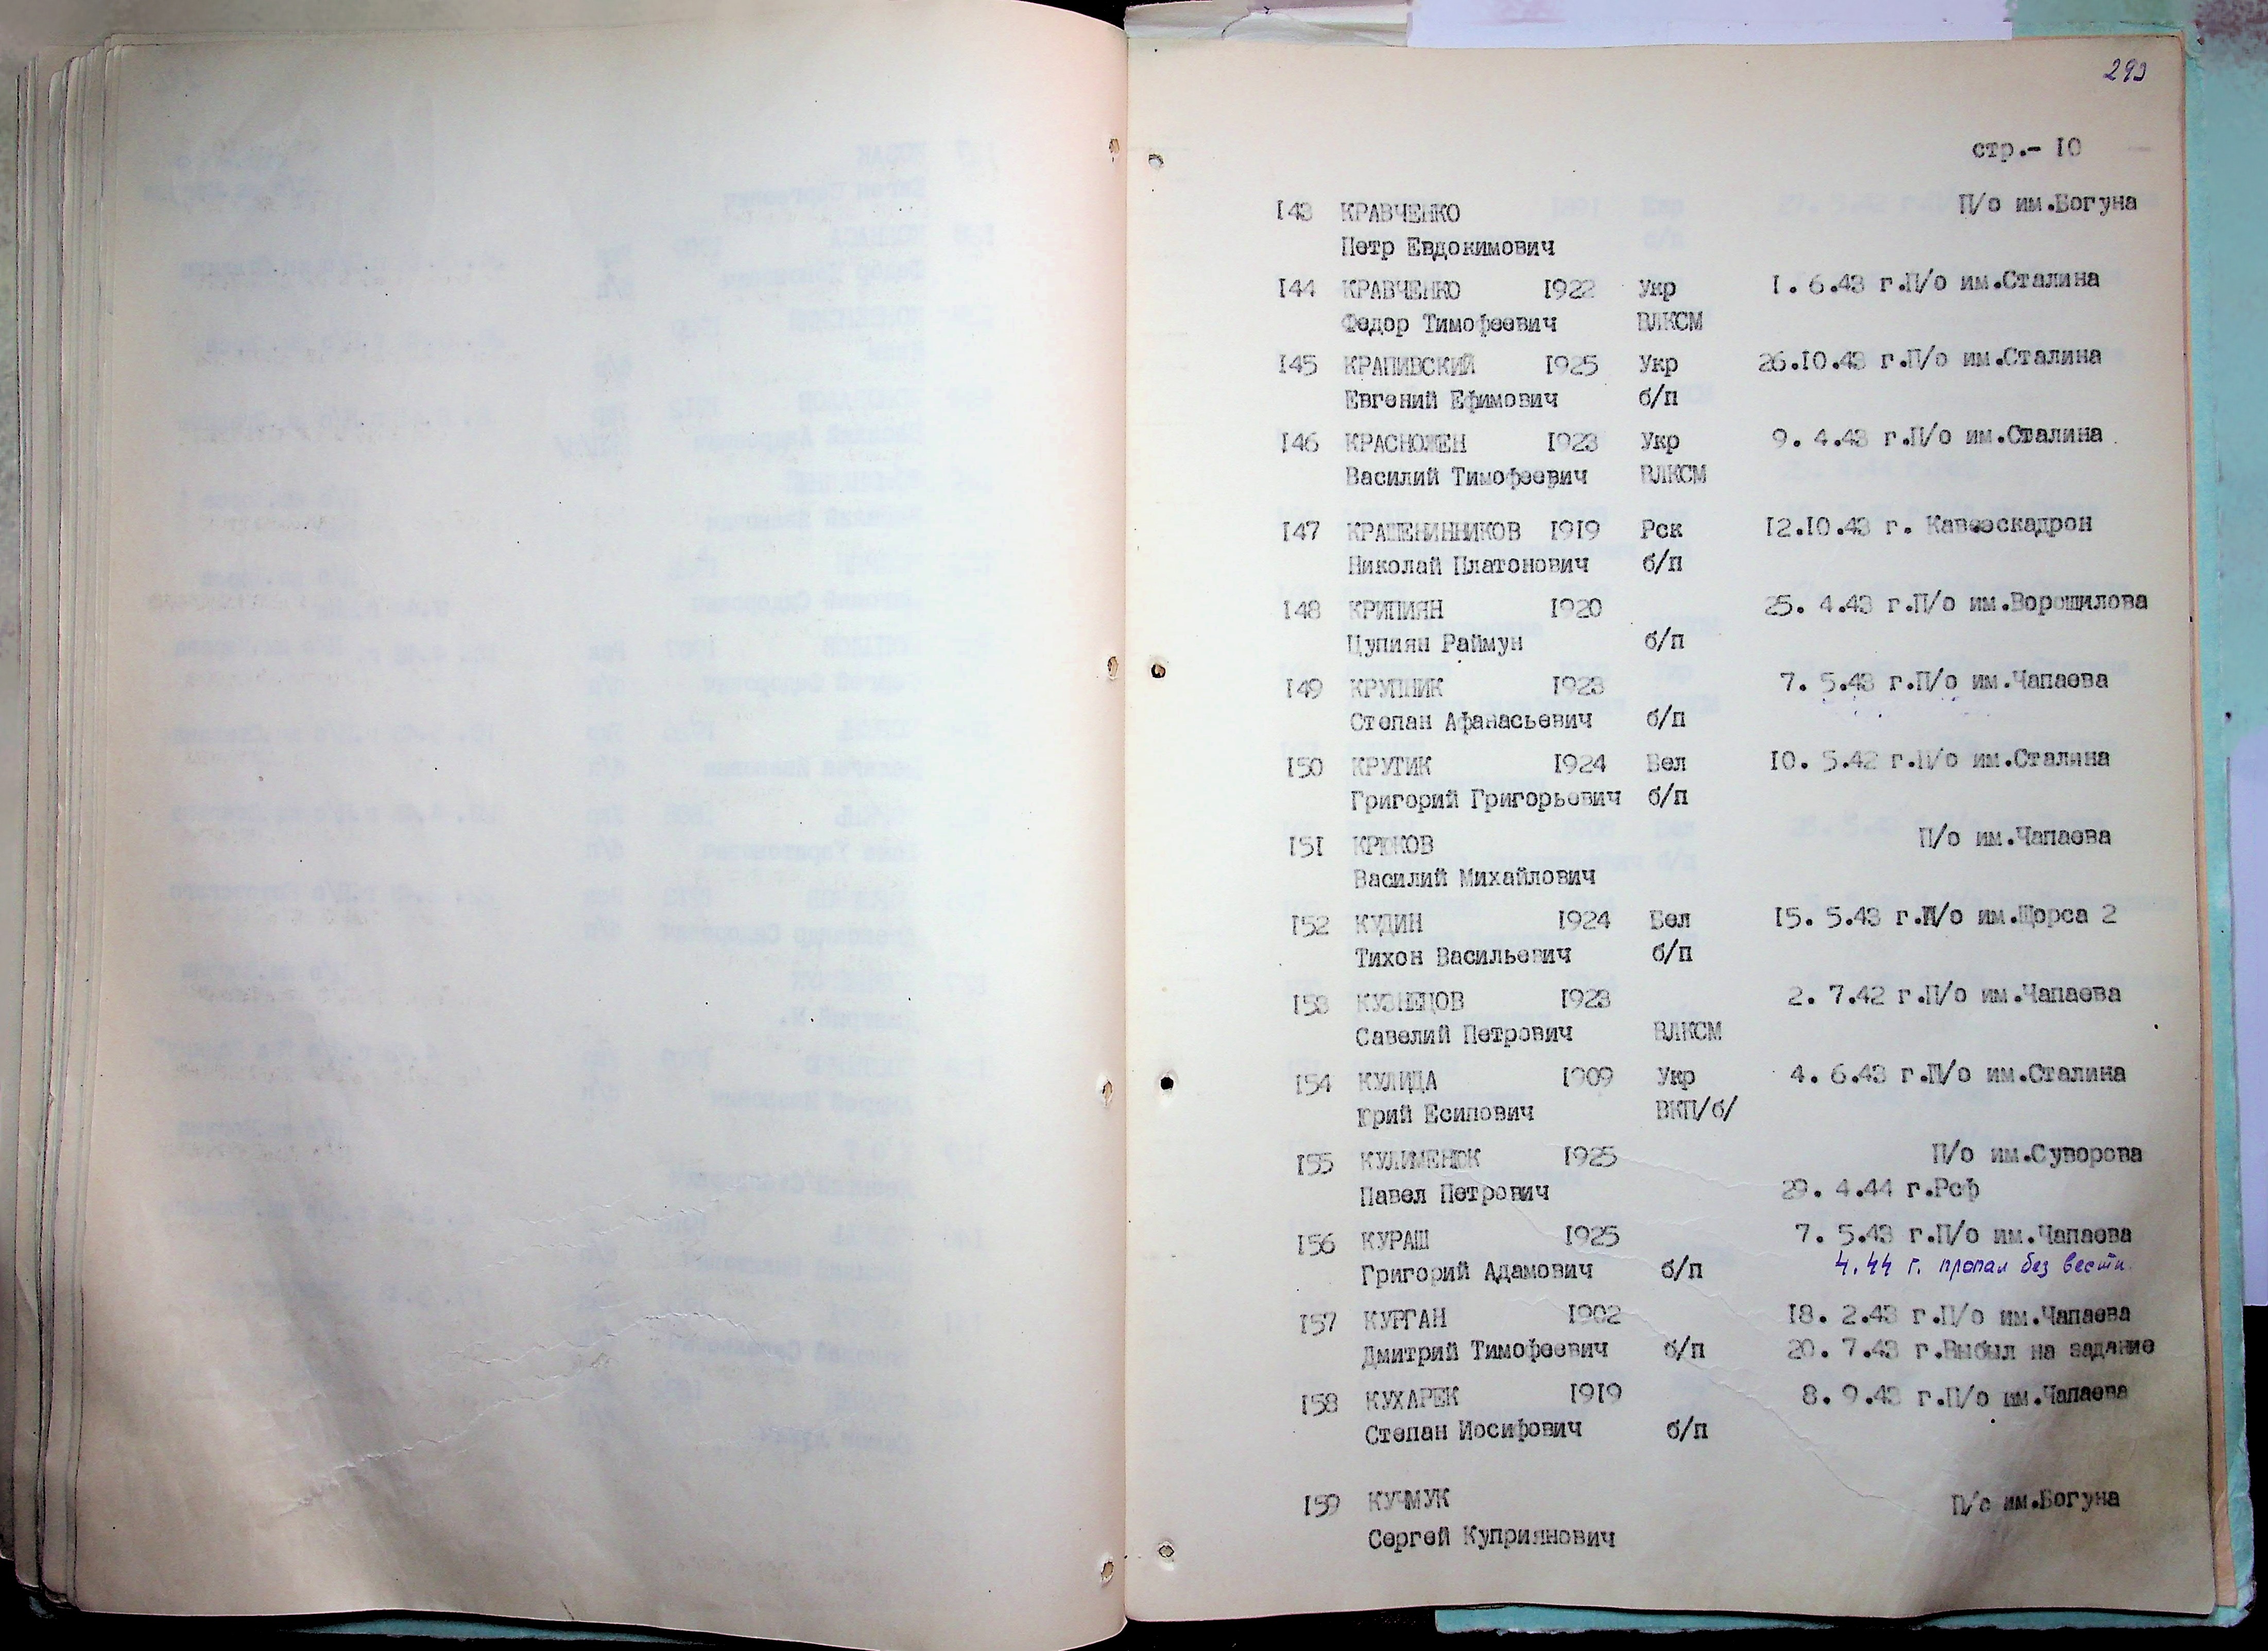 293
стр.- 10
143 КРАВЧЕНКО П/о им.Богуна
Петр Евдокимович
144 КРАВЧЕНКО 1922 Укр 1. 6.43 г.П/о им.Сталина
Федор Тимофеевич ВЛКСМ
145 КРАПИВСКИЙ 1925 Укр 26.10.43 г.П/о им.Сталина
Евгений Ефимович б/п
146 КРАСНОЖЕН 1923 Укр 9. 4.43 г.П/о им.Сталина
Василий Тимофеевич ВЛКСМ
147 КРАШЕНИННИКОВ 1919 Рск 12.10.43 г. Кавэскадрон
Николай Платонович б/п
148 КРИПИЯН 1920 25. 4.43 г.П/о им.Ворошилова
Цупиян Раймун б/п
149 КРУПНИК 1923 7. 5.43 г.П/о им.Чапаева
Степан Афанасьевич б/п
150 КРУТИК 1924 Бел 10. 5.42 г.П/о им.Сталина
Григорий Григорьевич б/п
151 КРЮКОВ П/о им.Чапаева
Василий Михайлович
152 КУДИН 1924 Бел 15. 5.43 г.П/о им.Щорса 2
Тихон Васильевич б/п
153 КУЗНЕЦОВ 1923 2. 7.42 г.П/о им.Чапаева
Савелий Петрович ВЛКСМ
154 КУЛИДА 1909 Укр 4. 6.43 г.П/о им.Сталина
Юрий Есипович ВКП/б/
155 КУЛИМЕНЮК 1925 П/о им.Суворова
Павел Петрович 29. 4.44 г.Рсф
156 КУРАШ 1925 7. 5.43 г.П/о им.Чапаева
Григорий Адамович б/п 4.44 г. пропал без вести.
157 КУРГАН 1902 18. 2.43 г.П/о им.Чапаева
Дмитрий Тимофеевич б/п 20. 7.43 г.Выбыл на задание
158 КУХАРЕК 1919 8. 9.43 г.П/о им.Чапаева
Степан Иосифович б/п
159 КУЧМУК П/о им.Богуна
Сергей Куприянович